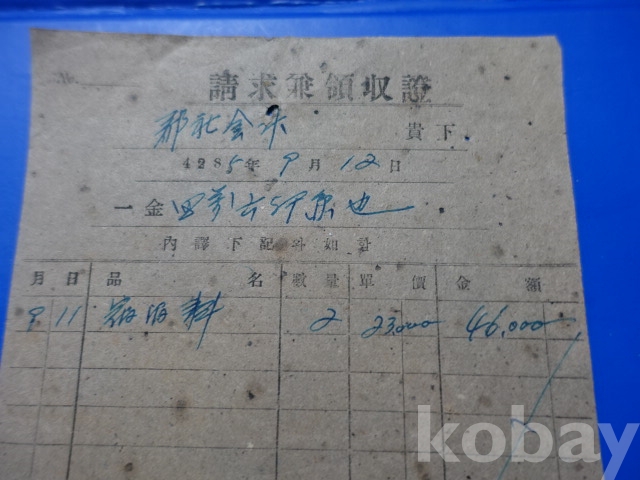 No.
請求兼領収證
郡社会課 貴下
4285年 9月 12日
一金 四萬六仟 也
內譯下記와如히計
月 日 品名 數量 單價 金額
9 11 2 23,000 46,000
kobay